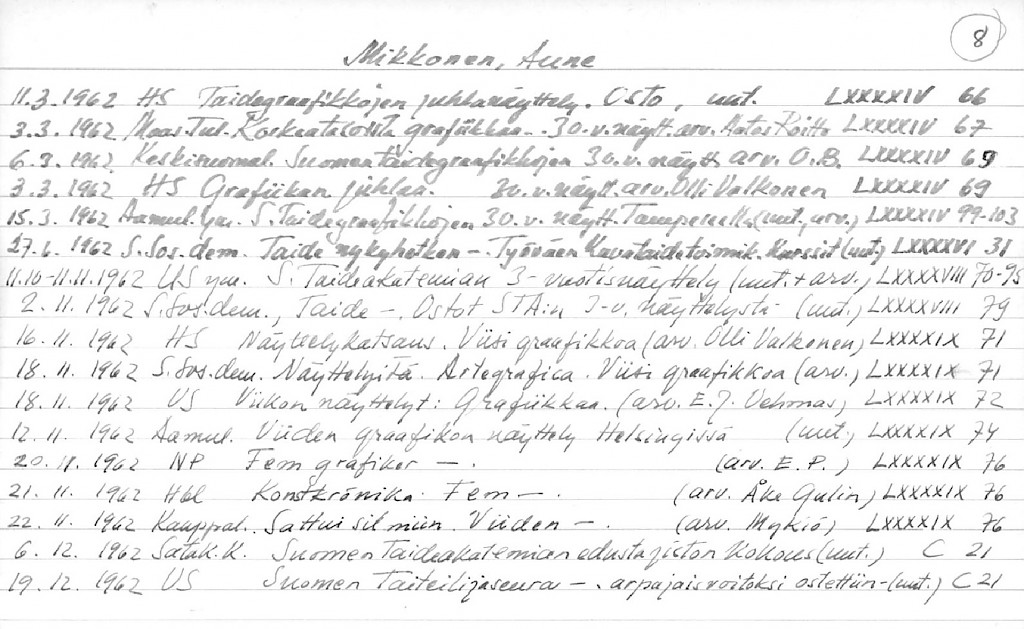 8
Mikkonen, Aune
11.3.1962 HS Taidegraafikkojen juhlanäyttely. Osto, uut. LXXXXIV 66
3.3.1962 Maas.Tul. Korkeatasoista grafiikkaa -. 30.v.näytt.arv. LXXXXIV 67
6.3.1962 Keskisuomal. Suomen taidegraafikkojen 30.v. näytt. arv. O.B. LXXXXIV 69
3.3.1962 HS Grafiikan juhlaa. 30.v.näytt.arv. Olli Valkonen LXXXXIV 69
15.3.1962 Aamul. ym. S. Taidegraafikkojen 30.v. näytt. Tampereella (uut, arv.) LXXXXIV 99-103
27.6.1962 S.Sos.dem. Taide nykyhetken -. Työväen Kuvataidetoimik. Kurssit (uut.) LXXXXVI 31
11.10-11.11.1962 US ym. S. Taideakatemian 3-vuotisnäyttely (uut.+arv.) LXXXXVIII 70-95
2.11.1962 S.Sos.dem., Taide -. Ostot STA:n 3-v. näyttelystä (uut.) LXXXXVIII 79
16.11.1962 HS Näyttelykatsaus. Viisi graafikkoa (arv. Olli Valkonen) LXXXXIX 71
18.11.1962 S.Sos.dem. Näyttelyitä. Artegrafica. Viisi graafikkoa (arv.) LXXXXIX 71
18.11.1962 US Viikon näyttelyt: Grafiikkaa. (arv. E.J. Vehmas) LXXXXIX 72
12.11.1962 Aamul. Viiden graafikon näyttely Helsingissä (uut.) LXXXXIX 74
20.11.1962 NP Fem grafiker -. (arv. E.P.) LXXXXIX 76
21.11.1962 Hbl Konstkrönika. Fem -. (arv. Åke Gulin) LXXXXIX 76
22.11.1962 Kauppal. Sattui silmiin. Viiden -. (arv. Mykiö) LXXXXIX 76
6.12.1962 Satak.K. Suomen Taideakatemian edustajiston kokous (uut.) C 21
19.12.1962 US Suomen Taiteilijaseura -. arpajaisvoitoksi ostettiin - (uut.) C 21